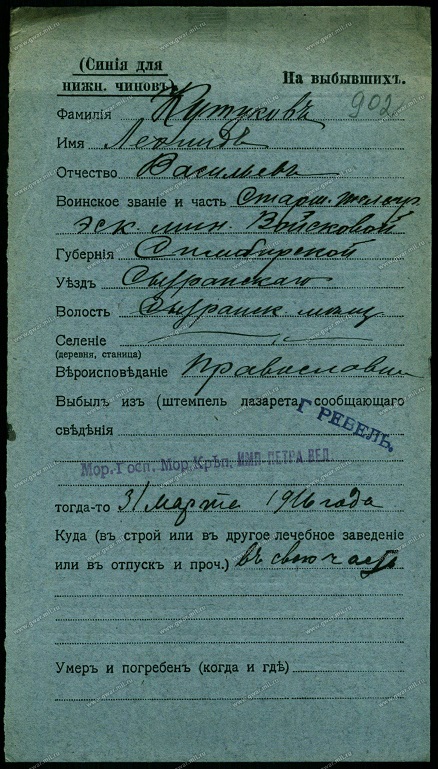 (Синія для
нижн. чиновъ)
На выбывшихъ.
902
Фамилія Кутуковъ
Имя Леонидъ
Отчество Васильевъ
Воинское званіе и часть Старш.
эск. мин. Войсковой
Губернія Симбирской
Уѣздъ Сызранскаго
Волость
Селеніе
(деревня, станица)
Вѣроисповѣданіе Православн
Выбылъ изъ (штемпель лазарета, сообщающаго
Г РЕВЕЛЬ.
свѣдѣнія
Мор. Госп. Мор. Крѣп. ИМП. ПЕТРА ВЕЛ.
тогда-то 31 марта 1916 года
Куда (въ строй или въ другое лечебное заведеніе
или въ отпускъ и проч.) въ свою часть
Умеръ и погребенъ (когда и гдѣ)